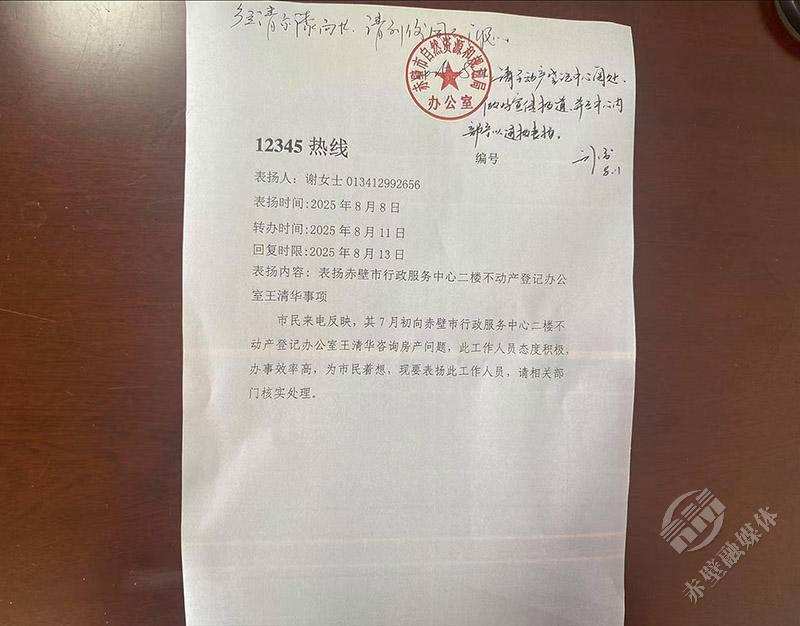 赤壁市自然资源和规划局
办公室
请不动产登记中心阅处、
做好宣传报道、并在中心内
部予以通报表扬。
12345 热线
编号
表扬人：谢女士 013412992656
表扬时间:2025 年 8 月 8 日
转办时间:2025 年 8 月 11 日
回复时限:2025 年 8 月 13 日
表扬内容：表扬赤壁市行政服务中心二楼不动产登记办公
室王清华事项
市民来电反映，其 7 月初向赤壁市行政服务中心二楼不
动产登记办公室王清华咨询房产问题，此工作人员态度积极，
办事效率高，为市民着想，现要表扬此工作人员，请相关部
门核实处理。
赤壁融媒体